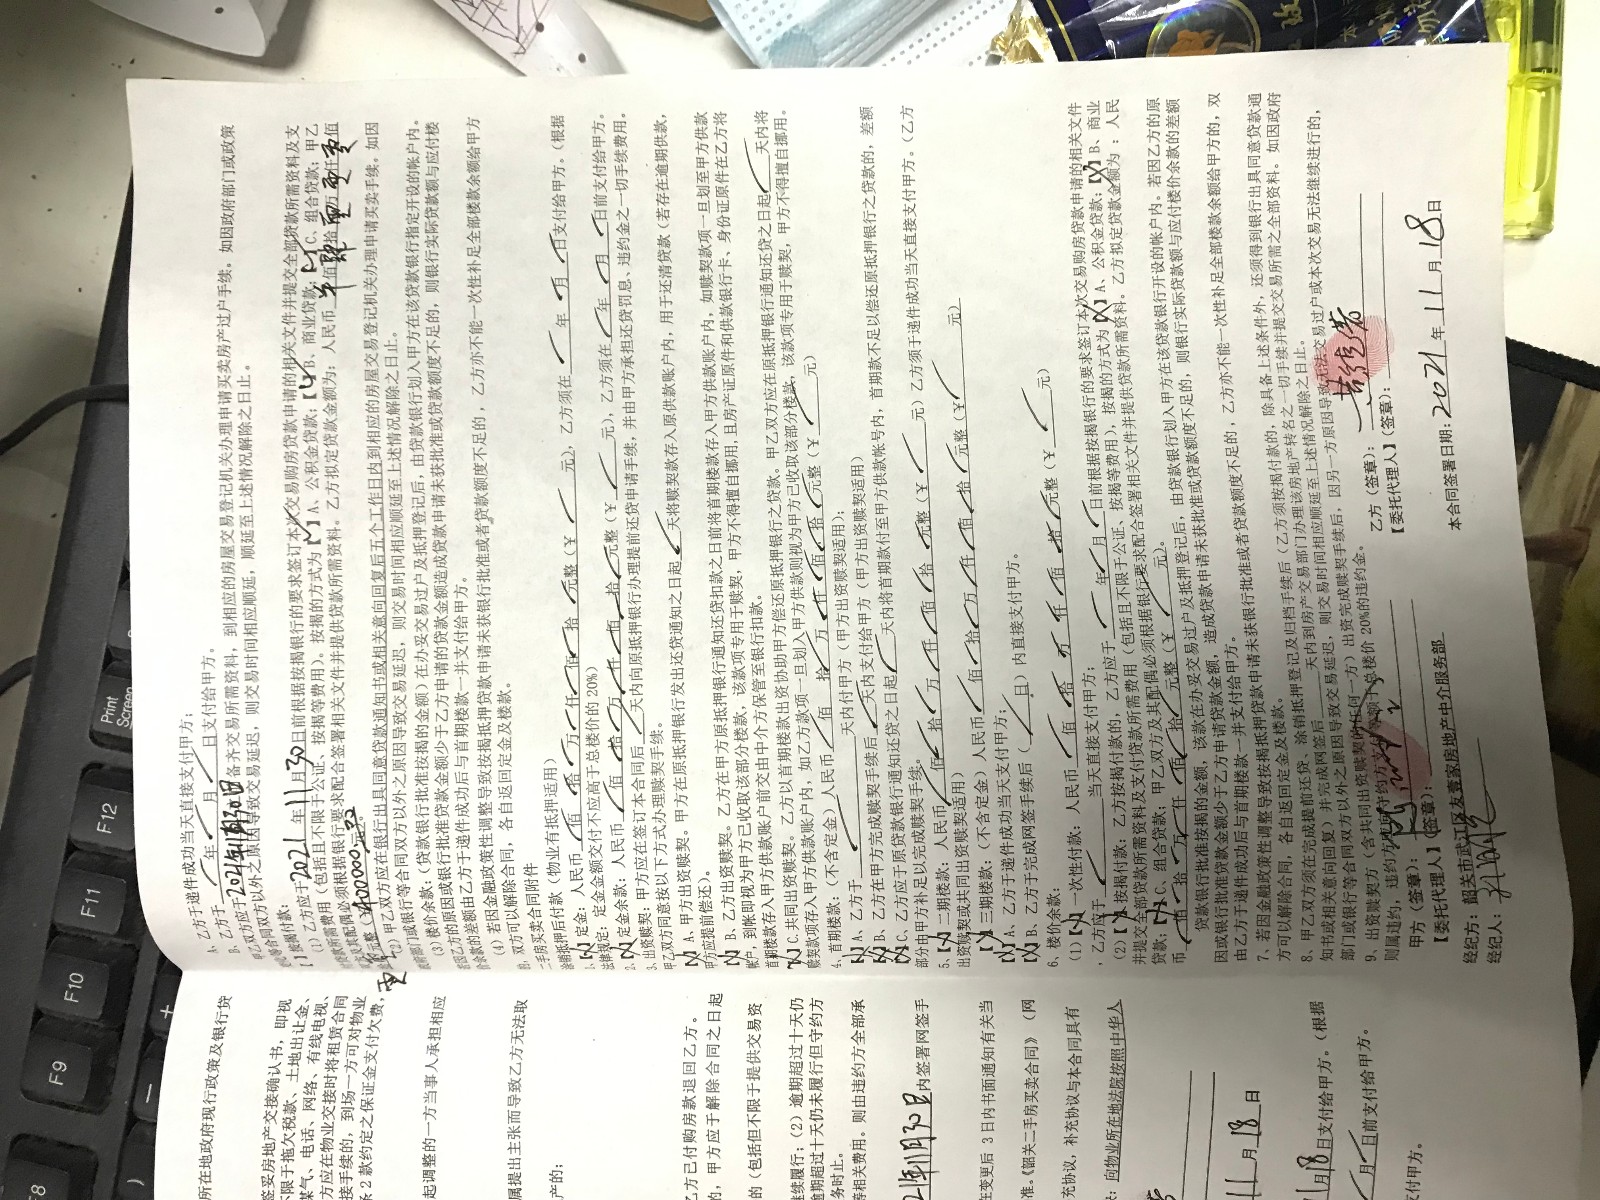 A、乙方于递件成功当天直接支付甲方；
B、乙方于 年 月 日支付给甲方。
乙方应于2021年11月30日备齐交易所需资料，到相应的房屋交易登记机关办理申请买卖房产过户手续。如因政府部门或政策
等合同双方以外之原因导致交易延迟，则交易时间相应顺延，顺延至上述情况解除之日止。
按揭付款：
（1）乙方应于2021年11月30日前根据按揭银行的要求签订本次交易购房贷款申请的相关文件并提交全部贷款所需资料及支
所需费用（包括且不限于公证、按揭等费用）。按揭的方式为【 】A、公积金贷款；【 】B、商业贷款；【 】C、组合贷款；甲乙
及其配偶必须根据银行要求配合签署相关文件并提供贷款所需资料。乙方拟定贷款金额为：人民币
（2）甲乙双方应在银行出具同意贷款通知书或相关意向回复后五个工作日内到相应的房屋交易登记机关办理申请买卖手续。如因
部门或银行等合同双方以外之原因导致交易延迟，则交易时间相应顺延至上述情况解除之日止。
（3）楼价余款：（贷款银行批准按揭的金额）在办妥交易过户及抵押登记后，由贷款银行划入甲方在该贷款银行指定开设的帐户内。
乙方的原因或银行批准贷款金额少于乙方申请的贷款金额造成贷款申请未获批准或贷款额度不足的，则银行实际贷款额与应付楼
款的差额由乙方于递件成功后与首期楼款一并支付给甲方。
（4）若因金融政策性调整导致按揭抵押贷款申请未获银行批准或者贷款额度不足的，乙方亦不能一次性补足全部楼款余额给甲方
的，双方可以解除合同，各自返回定金及楼款。
二手房买卖合同附件
涂销抵押后付款（物业有抵押适用）
1、定金：人民币 佰 拾 万 仟 佰 拾 元整（￥ 元），乙方须在 年 月 日支付给甲方。（根据
法律规定：定金金额交付不应高于总楼价的20%）
2、定金余款：人民币 佰 拾 万 仟 佰 拾 元整（￥ 元），乙方须在 年 月 日前支付给甲方。
3、出资赎契：甲方应在签订本合同后 天内向原抵押银行办理提前还贷申请手续，并由甲方承担还贷罚息、违约金之一切手续费用。
甲乙双方同意按以下方式办理赎契手续。
【 】A、甲方出资赎契。甲方在原抵押银行发出还贷通知之日起 天将赎契款存入原供款账户内，用于还清贷款（若存在逾期供款，
甲方应提前偿还）。
【 】B、乙方出资赎契。乙方在甲方原抵押银行通知还贷扣款之日前将首期楼款存入甲方供款账户内，如赎契款项一旦划至甲方供款
帐户，到账即视为甲方已收取该部分楼款，该款项专用于赎契，甲方不得擅自挪用，且房产证原件和供款银行卡、身份证原件在乙方将
首期楼款存入甲方供款账户前交由中介方保管至银行扣款。
【 】C、共同出资赎契。乙方以首期楼款出资协助甲方偿还原抵押银行之贷款。甲乙双方应在原抵押银行通知还贷之日起 天内将
赎契款项存入甲方供款账户内，如乙方款项一旦划入甲方供款则视为甲方已收取该部分楼款，该款项专用于赎契，甲方不得擅自挪用。
4、首期楼款：（不含定金）人民币 佰 拾 万 仟 佰 拾 元整（￥ 元）
【 】A、乙方于 天内付甲方（甲方出资赎契适用）；
【 】B、乙方在甲方完成赎契手续后 天内支付给甲方（甲方出资赎契适用）
【 】C、乙方应于原贷款银行通知还贷之日起 天内将首期款付至甲方供款帐号内，首期款不足以偿还原抵押银行之贷款的，差额
部分由甲方补足以完成赎契手续。
5、二期楼款：人民币 佰 拾 万 仟 佰 拾 元整（￥ 元）乙方须于递件成功当天直接支付甲方。（乙方
出资赎契或共同出资赎契适用）
【 】三期楼款：（不含定金）人民币 佰 拾 万 仟 佰 拾 元整（￥ 元）
【 】A、乙方于递件成功当天直接支付甲方。
【 】B、乙方于完成网签手续后（ 日）内直接支付甲方。
6、楼价余款：
（1）【 】一次性付款：人民币 佰 拾 万 仟 佰 拾 元整（￥ 元）
，乙方应于 当天直接支付甲方；
（2）【 】按揭付款：乙方按揭付款的，乙方应于 年 月 日前根据按揭银行的要求签订本次交易购房贷款申请的相关文件
并提交全部贷款所需资料及支付贷款所需费用（包括且不限于公证、按揭等费用），按揭的方式为【 】A、公积金贷款；【 】B、商业
贷款；【 】C、组合贷款；甲乙双方及其配偶必须根据银行要求配合签署相关文件并提供贷款所需资料。乙方拟定贷款金额为：人民
币 佰 拾 万 仟 佰 拾 元整（￥ 元）。
贷款银行批准按揭的金额，该款在办妥交易过户及抵押登记后，由贷款银行划入甲方在该贷款银行开设的帐户内。若因乙方的原
因或银行批准贷款金额少于乙方申请贷款金额，造成贷款申请未获批准或贷款额度不足的，则银行实际贷款额与应付楼价余款的差额
由乙方于递件成功后与首期楼款一并支付给甲方。
7、若因金融政策性调整导致按揭抵押贷款申请未获银行批准或者贷款额度不足的，乙方亦不能一次性补足全部楼款余额给甲方的，双
方可以解除合同，各自返回定金及楼款。
8、甲乙双方须在完成提前还贷、涂销抵押登记及归档手续后（乙方须按揭付款的，除具备上述条件外，还须得到银行出具同意贷款通
知书或相关意向回复）并完成网签后 天内到房产交易部门办理该房地产转名之一切手续并提交交易所需之全部资料。如因政府
部门或银行等合同双方以外之原因导致交易延迟，则交易时间相应顺延至上述情况解除之日止。
9、出资赎契方（含共同出资赎契的任何一方）出资完成赎契手续后，因另一方原因导致无法交易过户或本次交易无法继续进行的，
则属违约，违约方须向守约方支付等额于总楼价20%的违约金。
甲方（签章）： 乙方（签章）：
【委托代理人】（签章）： 【委托代理人】（签章）：
经纪方：韶关市武江区友壹家房地产中介服务部
经纪人： 本合同签署日期：2021年11月18日
Print
Screen
F12
F11
F10
F9
F8
所在地政府现行政策及银行贷
签妥房地产交接确认书，即视
不限于拖欠税款、土地出让金、
煤气、电话、网络、有线电视、
方应在物业交接时将租赁合同
接手续的，到场一方可对物业
条2款约定之保证金支付欠费，
起调整的一方当事人承担相应
属提出主张而导致乙方无法取
产的；
乙方已付购房款退回乙方。
的，甲方应于解除合同之日起
的（包括但不限于提供交易资
继续履行；（2）逾期超过十天仍
逾期超过十天仍未履行但守约方
务时止。
等相关费用。则由违约方全部承
21年11月30日内签署网签手
在变更后3日内书面通知有关当
准。《韶关二手房买卖合同》（网
充协议，补充协议与本合同具有
向物业所在地法院按照中华人
11月18日
11月18日支付给甲方。（根据
月 日前支付给甲方。
支付甲方。